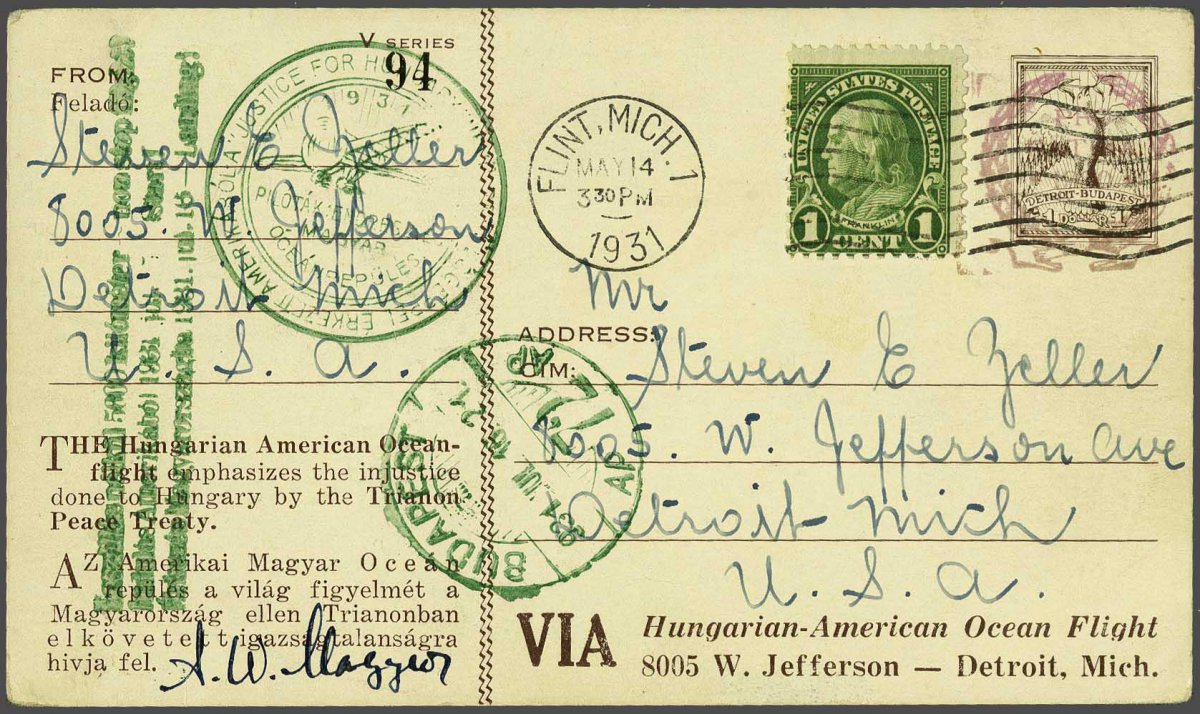 V SERIES
94
FROM:
Feladó:
Steven E Zeller
8005. W. Jefferson
Detroit Mich
U. S. A.
THE Hungarian American Ocean-
flight emphasizes the injustice
done to Hungary by the Trianon
Peace Treaty.
AZ Amerikai Magyar Oceán
repülés a világ figyelmét a
Magyarország ellen Trianonban
elkövetett igazságtalanságra
hivja fel.
JUSTICE FOR HUNGARY
1931
MAGYAR
BUDAPEST
FLINT, MICH. 1
MAY 14
3 30 PM
1931
UNITED STATES POSTAGE
FRANKLIN
1 CENT 1
DETROIT-BUDAPEST
1 DOLLAR 1
Mr
ADDRESS:
CÍM:
Steven E Zeller
8005. W. Jefferson Ave
Detroit Mich
U. S. A.
VIA Hungarian-American Ocean Flight
8005 W. Jefferson — Detroit, Mich.